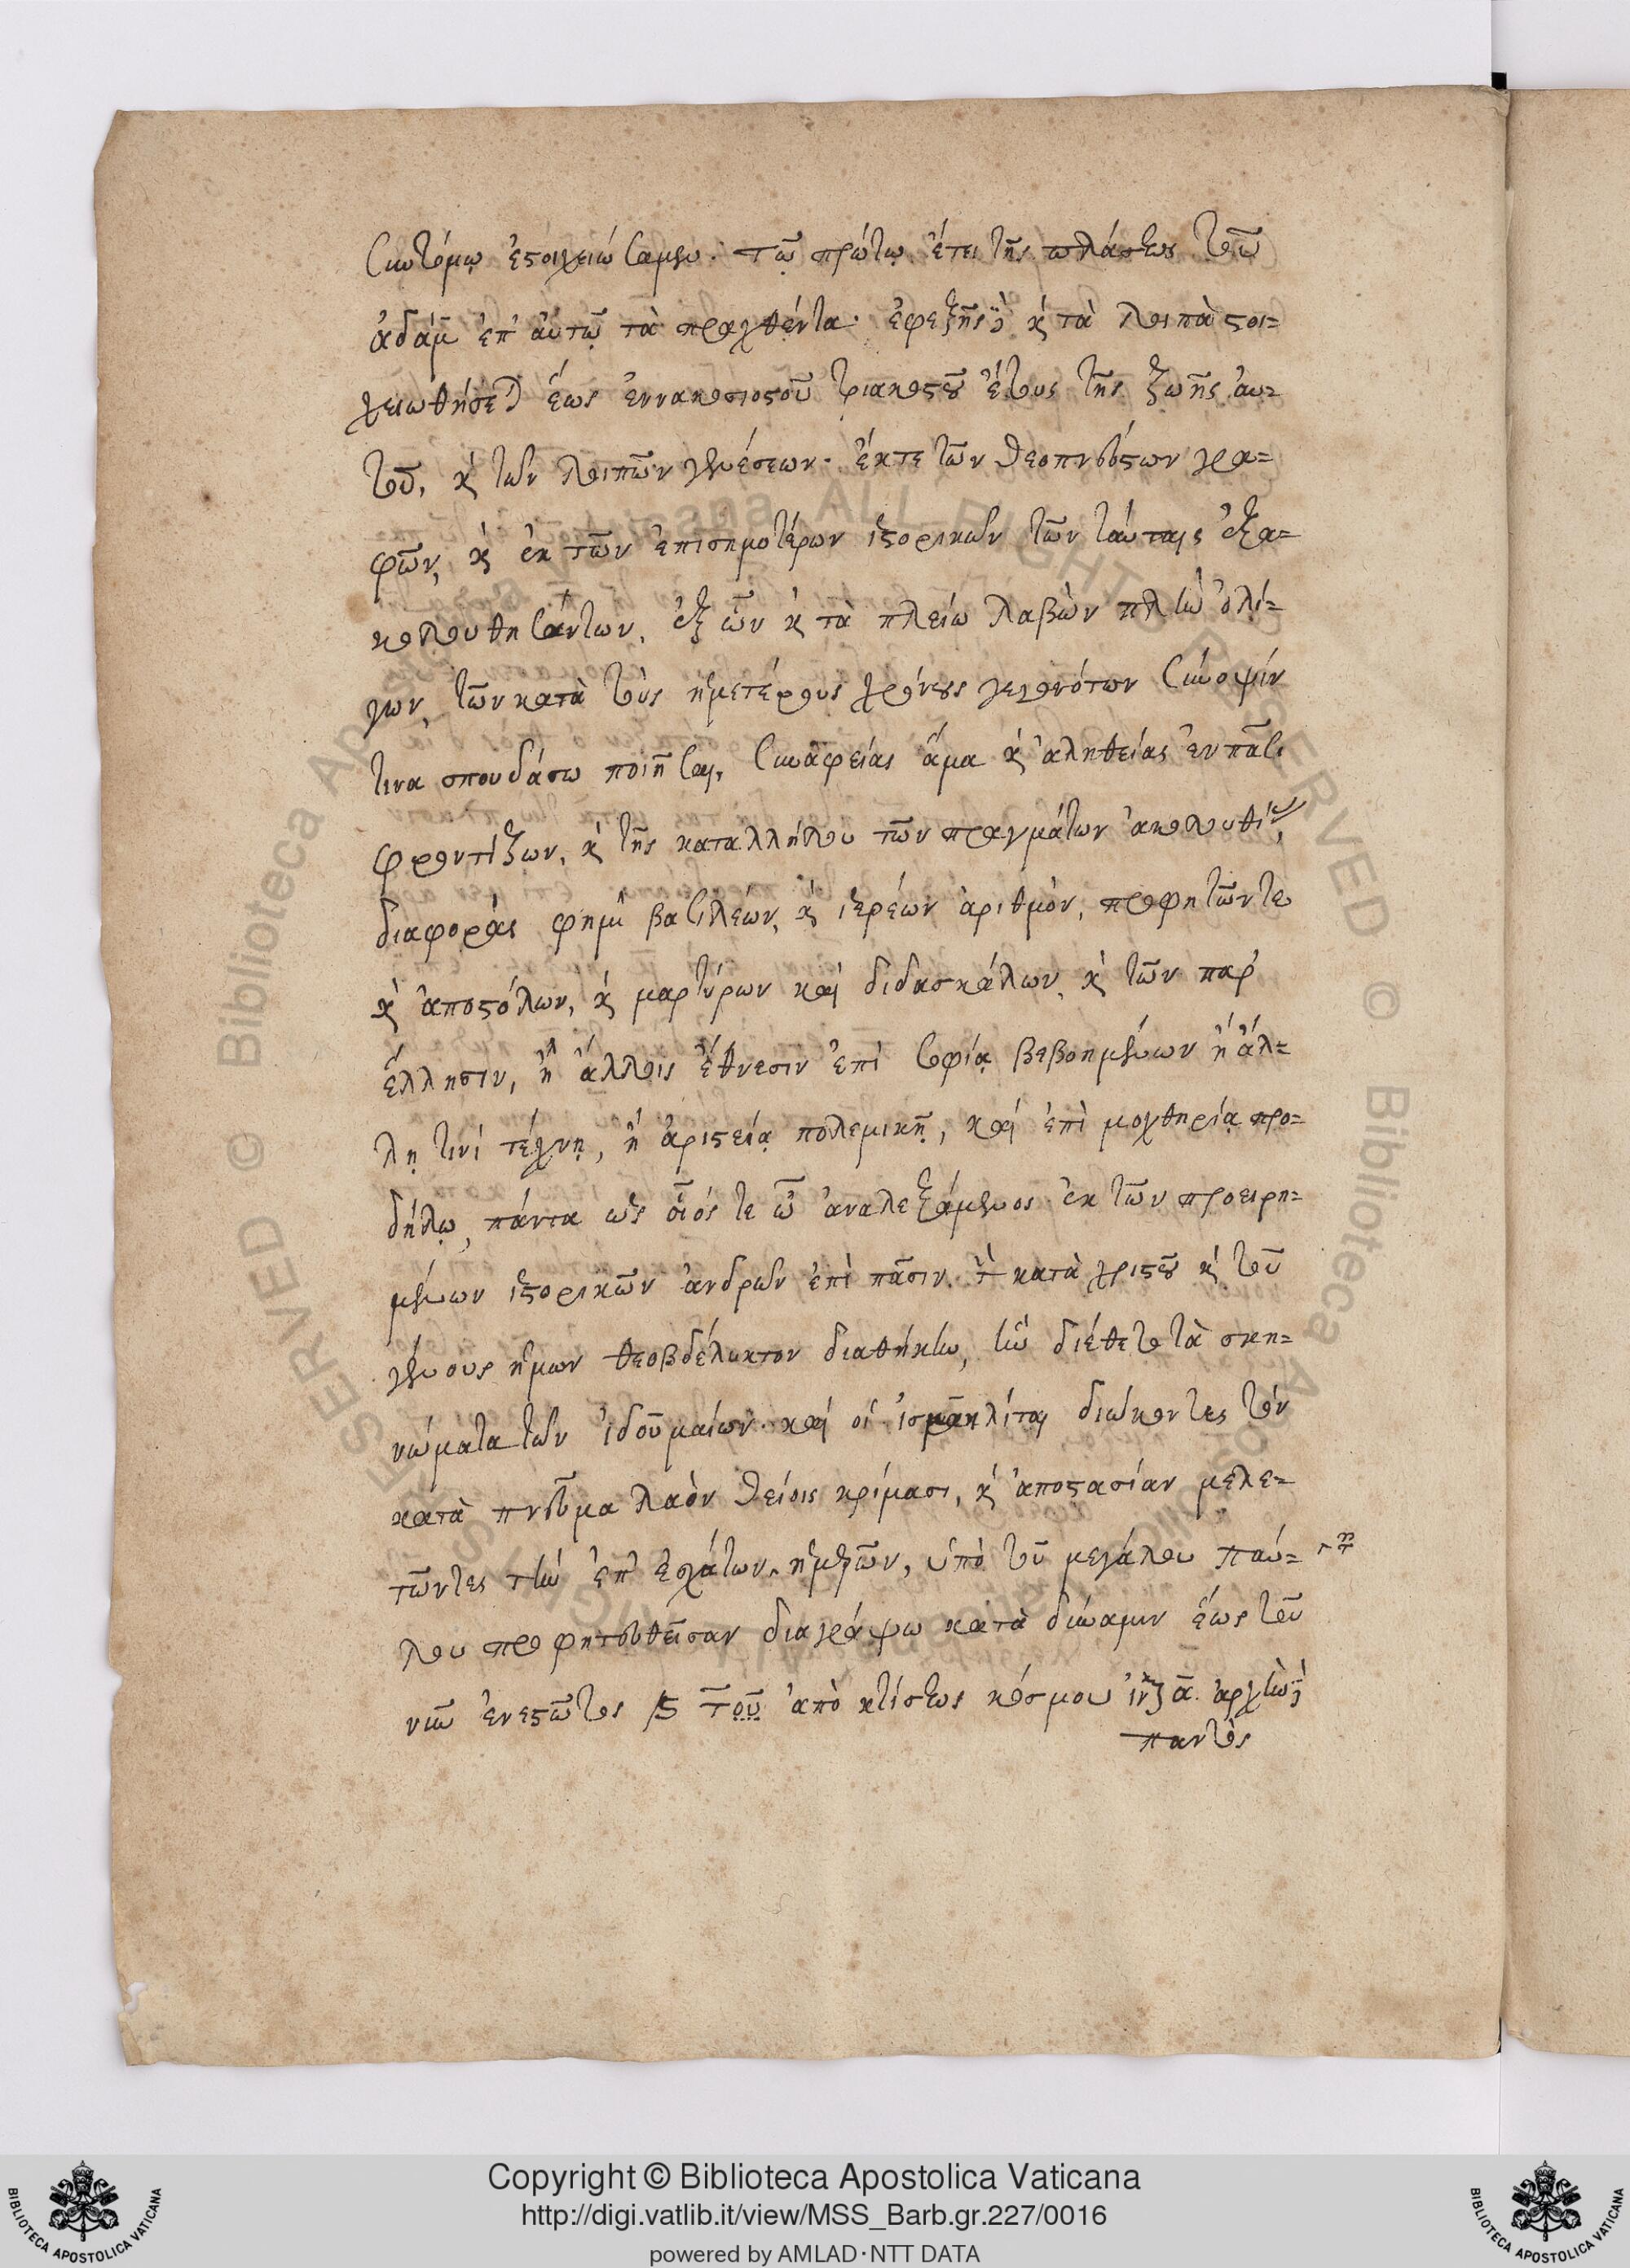 συντόμῳ ἐστοιχειώσαμεν· τῷ πρώτῳ ἔτει τῆς πλάσεως τοῦ
ἀδὰμ ἐπ' αὐτῷ τὰ πραχθέντα· ἐφεξῆς δὲ καὶ τὰ λοιπὰ στοι-
χειωθήσεται ἕως ἐννακοσιοστοῦ τριακοστοῦ ἔτους τῆς ζωῆς αὐ-
τοῦ, καὶ τῶν λοιπῶν γενέσεων· ἔκτε τῶν θεοπνεύστων γρα-
φῶν, καὶ ἐκ τῶν ἐπισημοτέρων ἱστορικῶν τῶν ταύταις ἐξα-
κολουθησάντων, ἐξ ὧν καὶ τὰ πλείω λαβὼν πλὴν ὀλί-
γων, τῶν κατὰ τοὺς ἡμετέρους χρόνους γεγονότων σύνοψίν
τινα σπουδάσω ποιῆσαι, συναφείας ἅμα καὶ ἀληθείας ἐν πᾶσι
φροντίζων, καὶ τῆς καταλλήλου τῶν πραγμάτων ἀκολουθίας,
διαφορὰς φημὶ βασιλέων, καὶ ἱερέων ἀριθμὸν, προφητῶν τε
καὶ ἀποστόλων, καὶ μαρτύρων καὶ διδασκάλων, καὶ τῶν παρ'
ἕλλησιν, ἢ ἄλλοις ἔθνεσιν ἐπὶ σοφίᾳ βεβοημένων ἢ ἄλ-
λῃ τινί τέχνῃ, ἢ ἀριστείᾳ πολεμικῇ, καὶ ἐπὶ μοχθηρίᾳ προ-
δήλῳ, πάντα ὡς οἷός τε ὦ ἀναλεξάμενος ἐκ τῶν προειρη-
μένων ἱστορικῶν ἀνδρῶν ἐπὶ πᾶσιν. τὴν κατὰ χριστοῦ καὶ τοῦ
γένους ἡμῶν θεοβδέλυκτον διαθήκην, ἣν διέθετο τὰ σκη-
νώματα τῶν ἰδουμαίων· καὶ οἱ ἰσμαηλίται διώκοντες τὸν
κατὰ πνεῦμα λαὸν θείοις κρίμασι, καὶ ἀποστασίαν μελε-
τῶντες τὴν ἐπ' ἐσχάτων ἡμερῶν, ὑπὸ τοῦ μεγάλου παύ-
λου προφητευθεῖσαν διαγράψω κατὰ δύναμιν ἕως τοῦ
νῦν ἐνεστῶτος ͵ς τοῦ ἀπὸ κτίσεως κόσμου ἰνδ α. ἀρχὴν δὲ
παντὸς
Copyright © Biblioteca Apostolica Vaticana
http://digi.vatlib.it/view/MSS_Barb.gr.227/0016
powered by AMLAD·NTT DATA